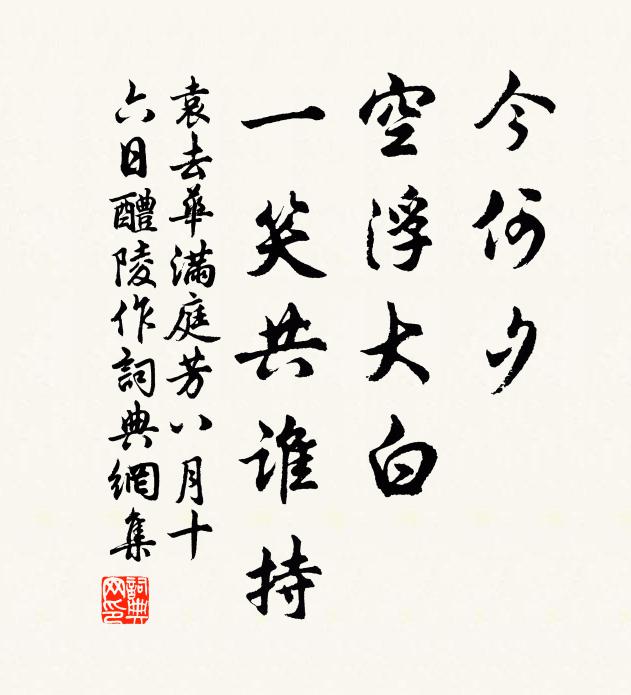 今何夕
空浮大白
一笑共谁持
袁去華滿庭芳八月十
六日醴陵作詞典網集
詞典
网印